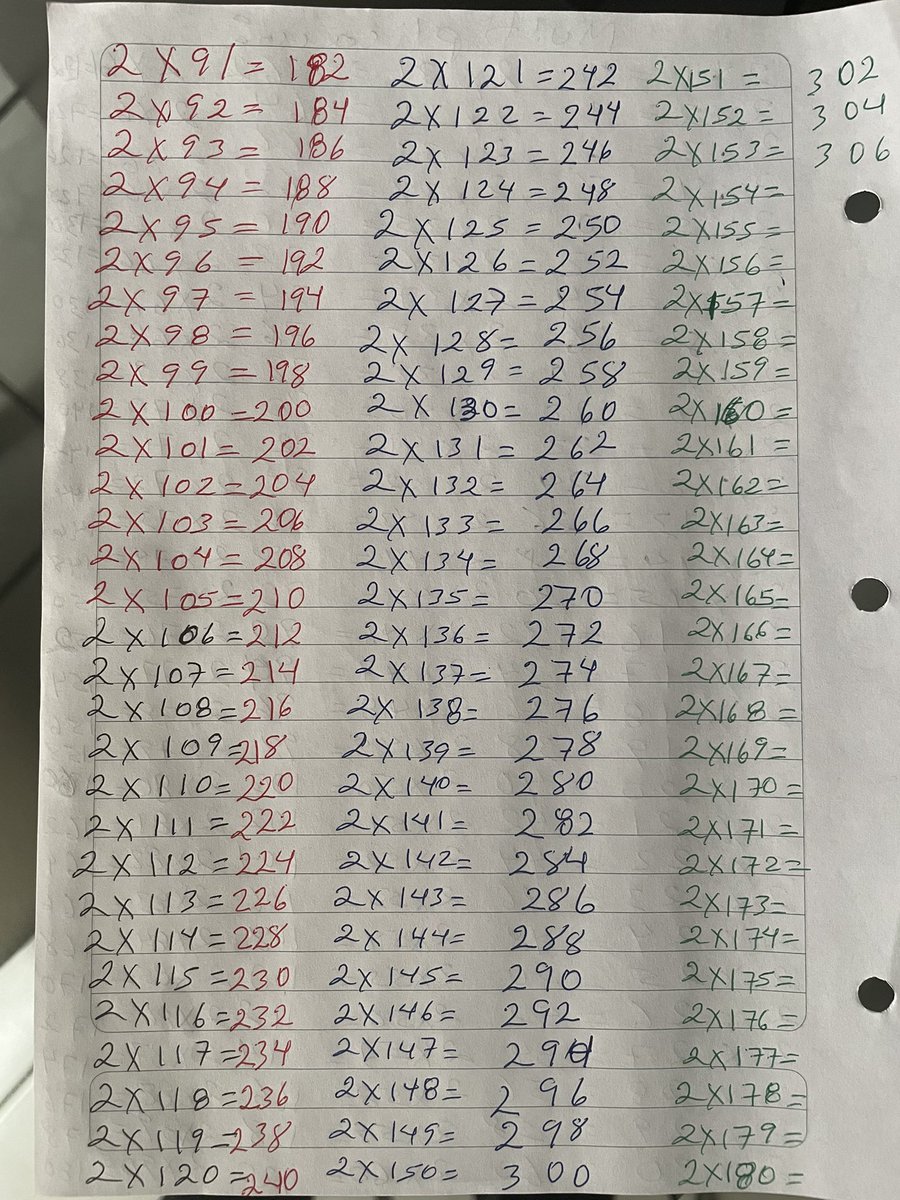 2 X 91 = 182
2 X 92 = 184
2 X 93 = 186
2 X 94 = 188
2 X 95 = 190
2 X 96 = 192
2 X 97 = 194
2 X 98 = 196
2 X 99 = 198
2 X 100 = 200
2 X 101 = 202
2 X 102 = 204
2 X 103 = 206
2 X 104 = 208
2 X 105 = 210
2 X 106 = 212
2 X 107 = 214
2 X 108 = 216
2 X 109 = 218
2 X 110 = 220
2 X 111 = 222
2 X 112 = 224
2 X 113 = 226
2 X 114 = 228
2 X 115 = 230
2 X 116 = 232
2 X 117 = 234
2 X 118 = 236
2 X 119 = 238
2 X 120 = 240
2 X 121 = 242
2 X 122 = 244
2 X 123 = 246
2 X 124 = 248
2 X 125 = 250
2 X 126 = 252
2 X 127 = 254
2 X 128 = 256
2 X 129 = 258
2 X 130 = 260
2 X 131 = 262
2 X 132 = 264
2 X 133 = 266
2 X 134 = 268
2 X 135 = 270
2 X 136 = 272
2 X 137 = 274
2 X 138 = 276
2 X 139 = 278
2 X 140 = 280
2 X 141 = 282
2 X 142 = 284
2 X 143 = 286
2 X 144 = 288
2 X 145 = 290
2 X 146 = 292
2 X 147 = 294
2 X 148 = 296
2 X 149 = 298
2 X 150 = 300
2 X 151 = 302
2 X 152 = 304
2 X 153 = 306
2 X 154 =
2 X 155 =
2 X 156 =
2 X 157 =
2 X 158 =
2 X 159 =
2 X 160 =
2 X 161 =
2 X 162 =
2 X 163 =
2 X 164 =
2 X 165 =
2 X 166 =
2 X 167 =
2 X 168 =
2 X 169 =
2 X 170 =
2 X 171 =
2 X 172 =
2 X 173 =
2 X 174 =
2 X 175 =
2 X 176 =
2 X 177 =
2 X 178 =
2 X 179 =
2 X 180 =